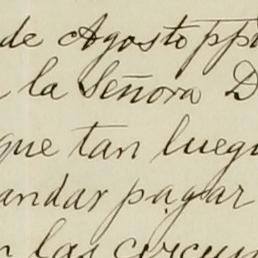 de Agosto ppt
la Señora D
que tan lueg
andar pagar
n las circun